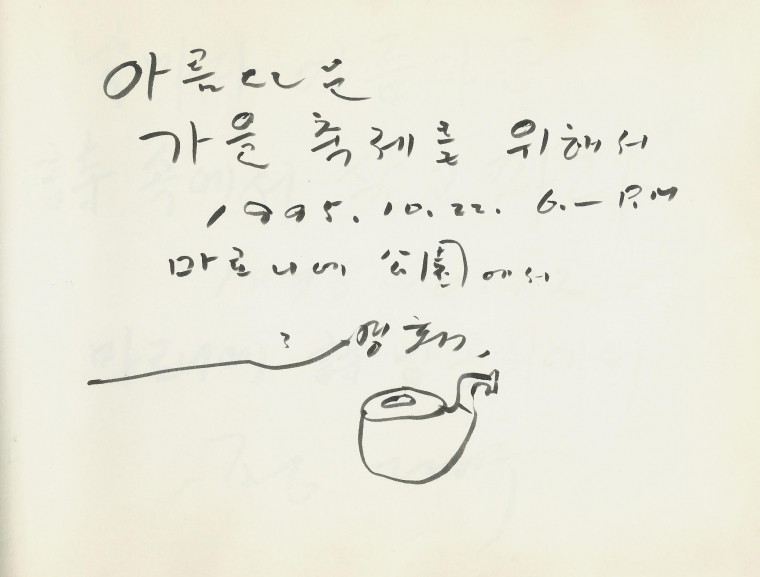 아름다운
가을 축제를 위해서
1995. 10. 22. 6.— P.M
마로니에 公園에서